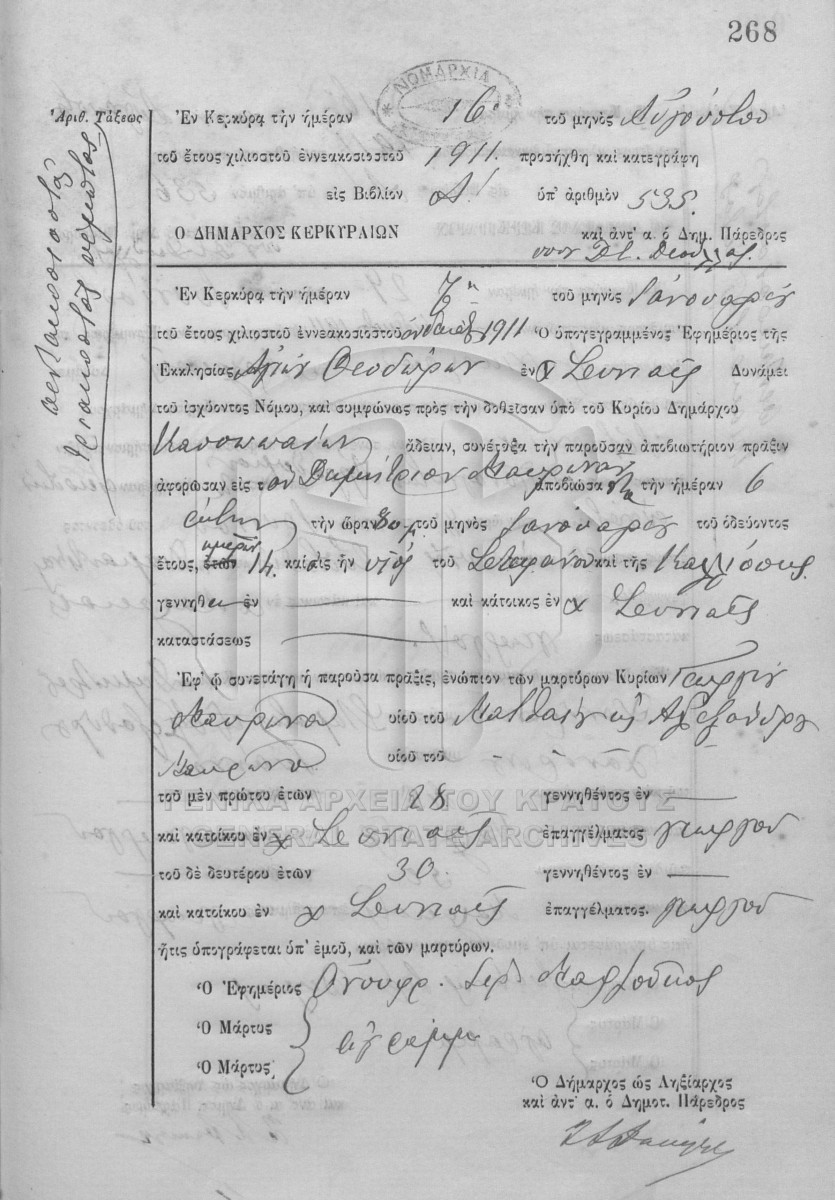 268
ΝΟΜΑΡΧΙΑ
Ἀριθ. Τάξεως
πεντακοσιοστὸς
τριακοστὸς πέμπτος
Ἐν Κερκύρᾳ τὴν ἡμέραν 16 τοῦ μηνὸς Αὐγούστου
τοῦ ἔτους χιλιοστοῦ ἐννεακοσιοστοῦ 1911 προσήχθη καὶ κατεγράφη
εἰς Βιβλίον Α! ὑπ' ἀριθμὸν 535.
Ο ΔΗΜΑΡΧΟΣ ΚΕΡΚΥΡΑΙΩΝ καὶ ἀντ' α. ὁ Δημ. Πάρεδρος
Ἐν Κερκύρᾳ τὴν ἡμέραν 7η τοῦ μηνὸς Ἰανουαρίου
τοῦ ἔτους χιλιοστοῦ ἐννεακοσιοστοῦ ἑνδεκάτου 1911 Ὁ ὑπογεγραμμένος Ἐφημέριος τῆς
Ἐκκλησίας Ἁγίων Θεοδώρων ἐν χ Δυνάμει
τοῦ ἰσχύοντος Νόμου, καὶ συμφώνως πρὸς τὴν δοθεῖσαν ὑπὸ τοῦ Κυρίου Δημάρχου
Κασσωπαίων ἄδειαν, συνέταξα τὴν παροῦσαν ἀποβιωτήριον πρᾶξιν
ἀφορῶσαν εἰς τὸν Δημήτριον Μαυρωνᾶν ἀποβιώσαντα τὴν ἡμέραν 6
ἕκτην τὴν ὥραν τοῦ μηνὸς Ἰανουαρίου τοῦ ὁδεύοντος
ἔτους, ἐτῶν ἡμερῶν 14 καὶ ὃς ἦν υἱὸς τοῦ Στεφάνου καὶ τῆς Καλλιόπης
γεννηθεὶς ἐν καὶ κάτοικος ἐν χ
καταστάσεως
Ἐφ' ᾧ συνετάγη ἡ παροῦσα πρᾶξις, ἐνώπιον τῶν μαρτύρων Κυρίων Γεωργίου
Μαυρωνᾶ υἱοῦ τοῦ Ματθαίου καὶ Ἀλεξάνδρου
Μαυρωνᾶ υἱοῦ τοῦ
τοῦ μὲν πρώτου ἐτῶν 28 γεννηθέντος ἐν
ΓΕΝΙΚΑ ΑΡΧΕΙΑ ΤΟΥ ΚΡΑΤΟΥΣ
καὶ κατοίκου ἐν χ ἐπαγγέλματος γεωργοῦ
GENERAL STATE ARCHIVES
τοῦ δὲ δευτέρου ἐτῶν 30 γεννηθέντος ἐν
καὶ κατοίκου ἐν χ ἐπαγγέλματος. γεωργοῦ
ἥτις ὑπογράφεται ὑπ' ἐμοῦ, καὶ τῶν μαρτύρων.
Ὁ Ἐφημέριος Ὀνούφρ.
Ὁ Μάρτυς
ἀγράμμ
Ὁ Μάρτυς
Ὁ Δήμαρχος ὡς Ληξίαρχος
καὶ ἀντ' α. ὁ Δημοτ. Πάρεδρος